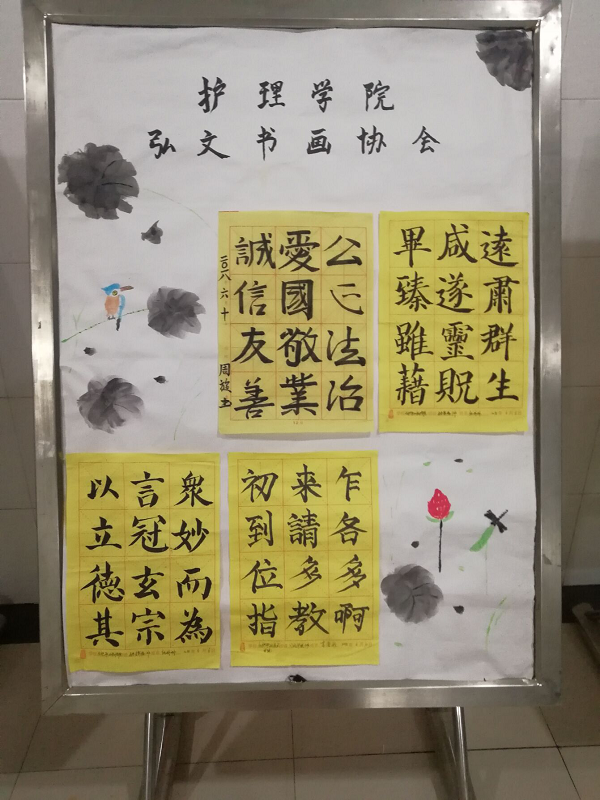 护理学院
弘文书画协会
公正法治
愛國敬業
誠信友善
六十
遠肅群生
咸遂靈貺
畢臻雖藉
衆妙而為
言冠玄宗
以立德其
乍各多啊
来請多教
初到位指